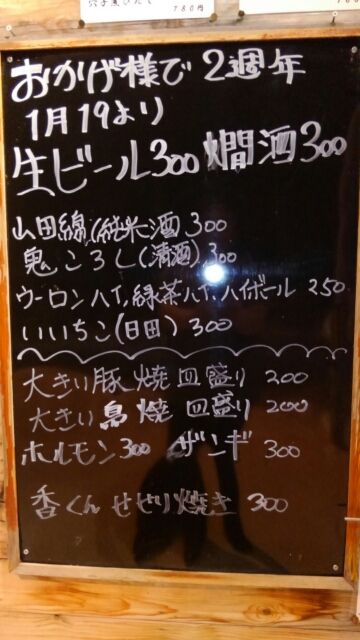 780円
おかげ様で2週年
1月19より
生ビール300 燗酒300
山田錦(純米酒 300
鬼ころし(清酒) 300
ウーロンハイ,緑茶ハイ,ハイボール 250
いいちこ(日田) 300
大きい豚焼皿盛り 200
大きい鳥焼皿盛り 200
ホルモン300 ザンギ 300
せせり焼き 300